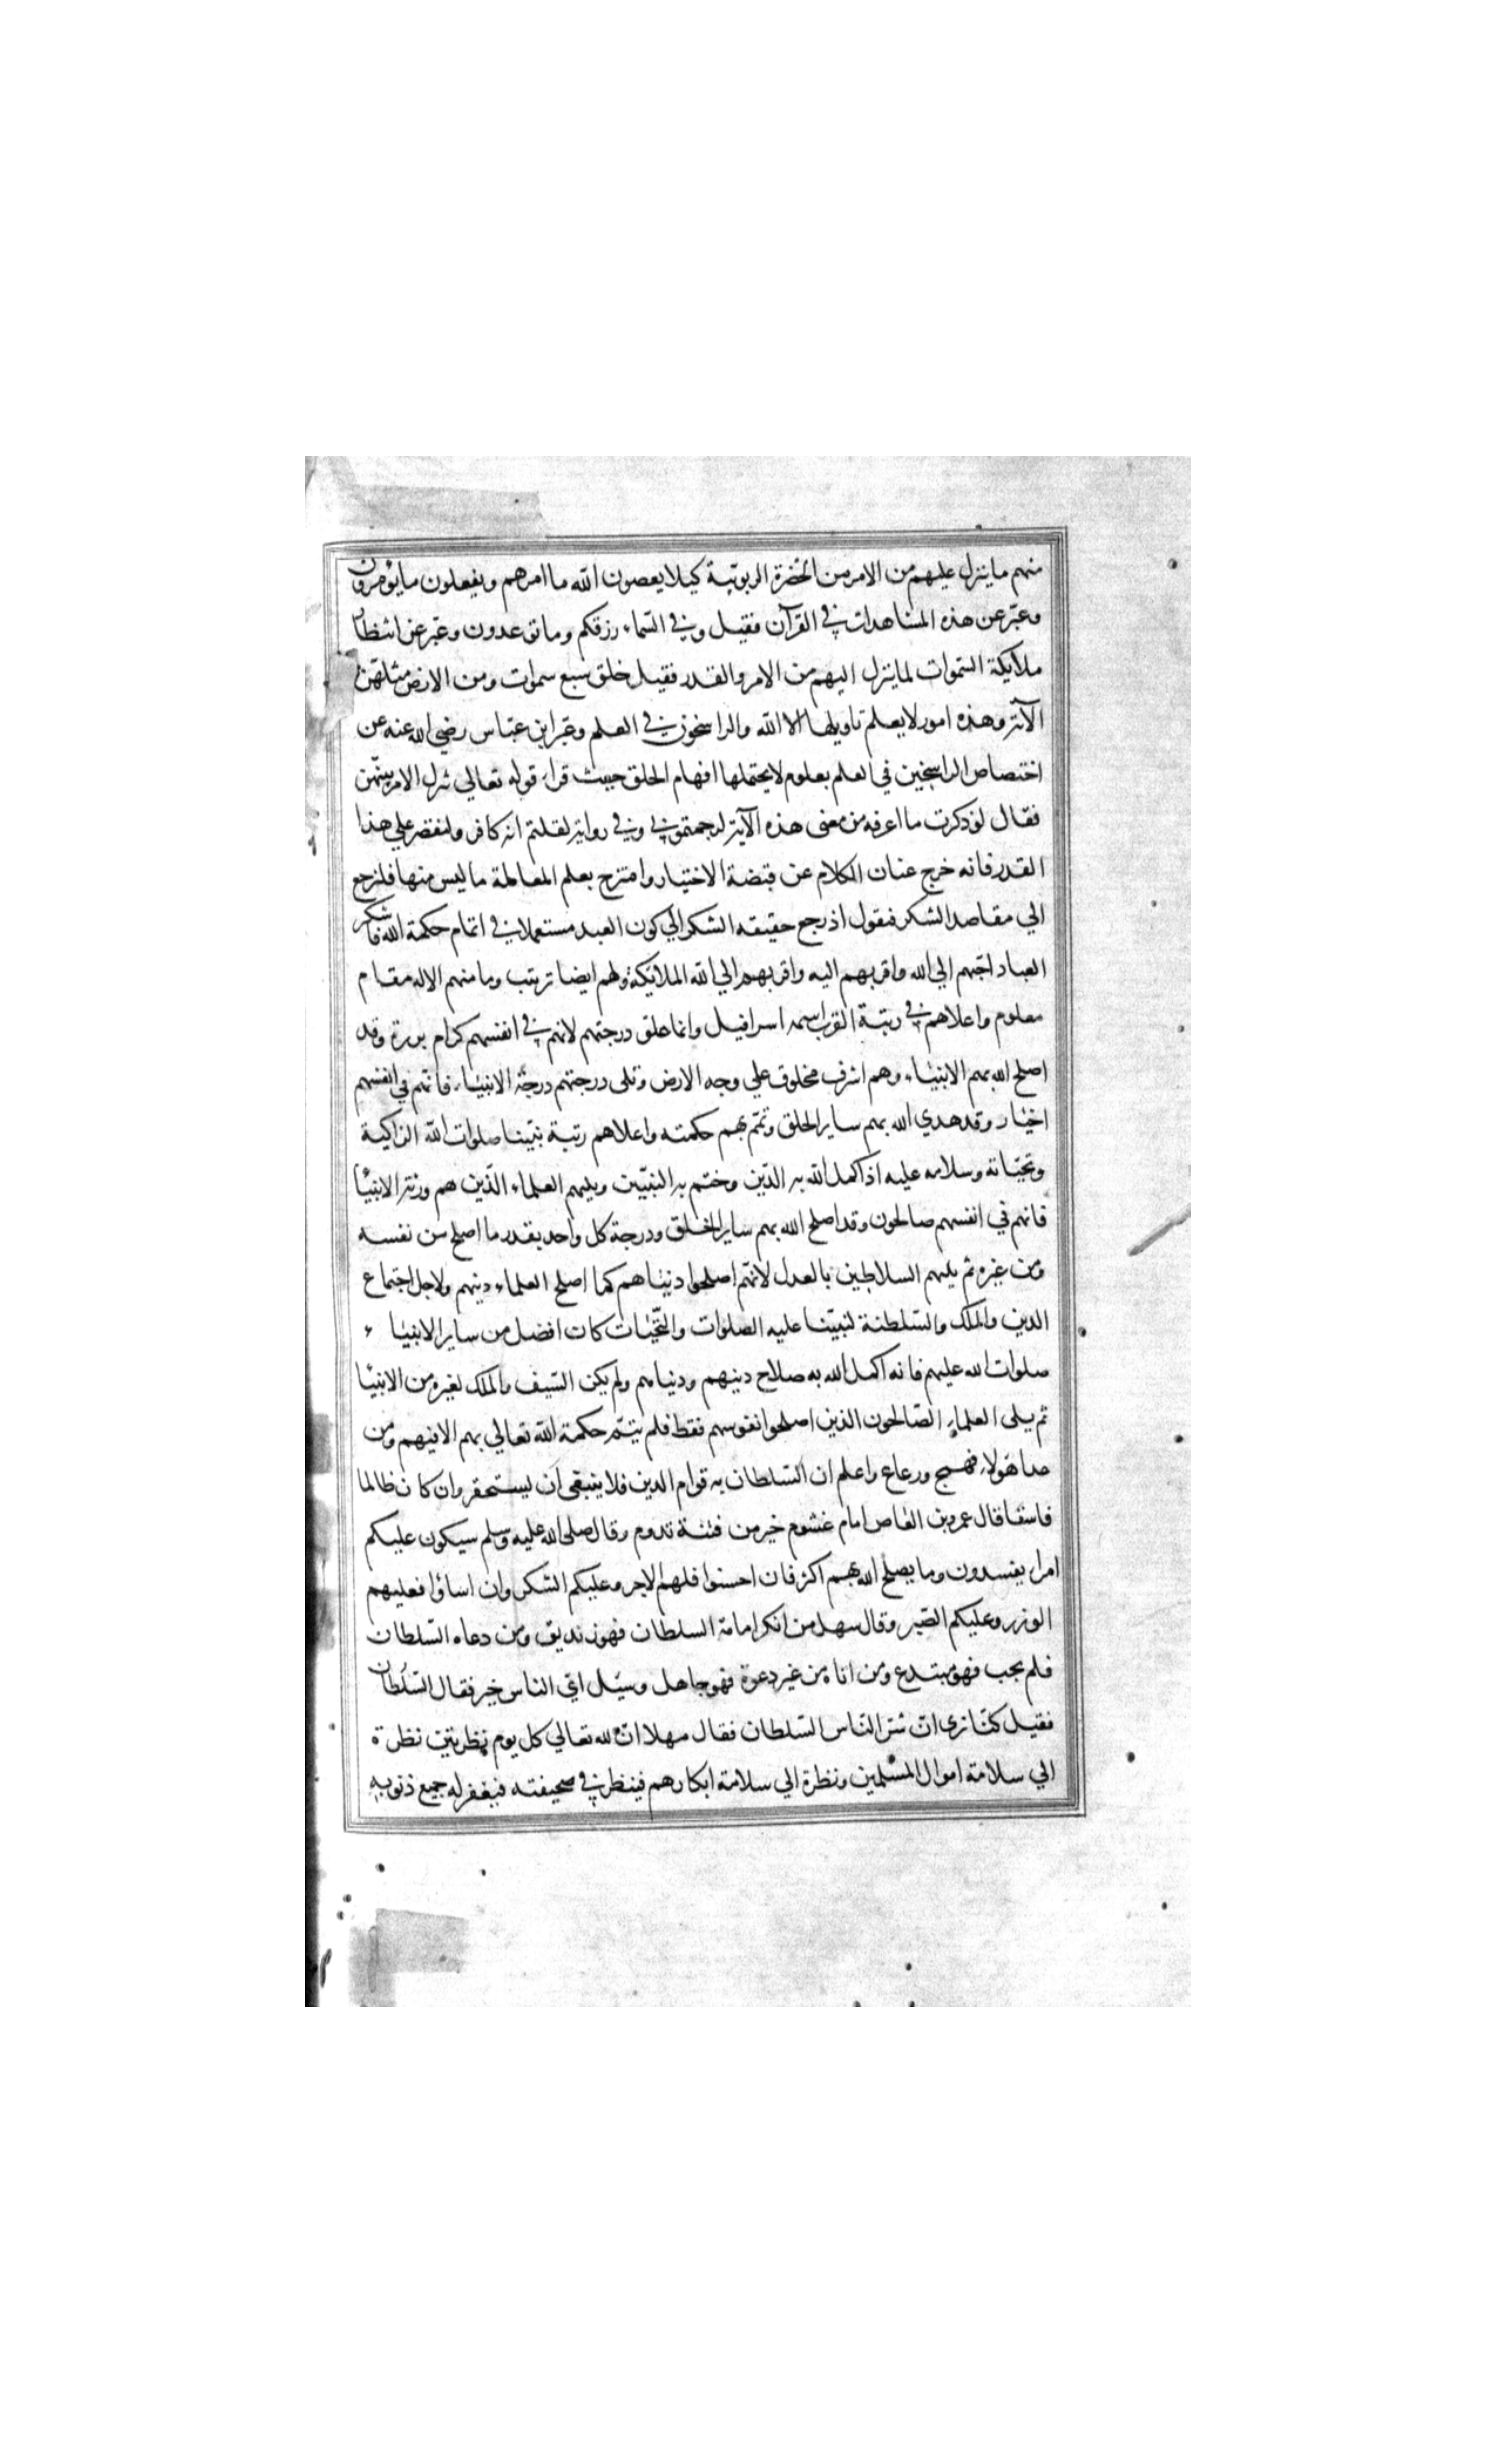 منهم ما ينزل عليهم من الامر من الحضرة الربوبية كيلا يعصون الله ما امرهم ويفعلون ما يؤمرون
وعبّر عن هذه المشاهدات في القرآن فقيل وفي السماء رزقكم وما توعدون وعبّر عن انتظار
ملايكة السموات لما ينزل اليهم من الامر والقدر فقيل خلق سبع سموات ومن الارض مثلهنّ
الآية وهذه امور لا يعلم تاويلها الا الله والراسخون في العلم وعبّر ابن عبّاس رضي الله عنه عن
اختصاص الراسخين في العلم بعلوم لا يحتملها افهام الخلق حيث قراء قوله تعالي يتنزل الامر بينهّن
فقال لو ذكرت ما اعرفه من معنى هذه الآية لرجمتموني وفي رواية لقلتم انه كافر ولنقتصر علي هذا
القدر فانه خرج عنان الكلام عن قبضة الاختيار وامتزج بعلم المعاملة ما ليس منها فلنرجع
الي مقاصد الشكر فنقول اذ يرجع حقيقه الشكر الي كون العبد مستعملا في اتمام حكمة الله فاشكر
العباد احبّهم الي الله واقربهم اليه واقربهم الي الله الملائيكة ولهم ايضا ترتيب وما منهم الا له مقام
معلوم واعلاهم في رتبة القرب اسمه اسرافيل وانما علق درجتهم لانهم في انفسهم كرام بررة وقد
اصلح الله بهم الانبياء وهم اشرف مخلوق علي وجه الارض وتلى درجتهم درجة الانبياء فانهم في انفسهم
اخيار وقد هدي الله بهم ساير الخلق وتمّم بهم حكمته واعلاهم رتبة نبيّنا صلوات الله الزاكية
وتحيّاته وسلامه عليه اذ اكمل الله به الدّين وختم به النبيّين ويليهم العلماء الّذين هم ورثة الانبيا
فانهم في انفسهم صالحون وقد اصلح الله بهم ساير الخلق ودرجة كل واحد بقدر ما اصلح من نفسه
ومن غيره ثم يليهم السلاطين بالعدل لانهم اصلحوا دنياهم كما اصلح العلماء دينهم ولاجل اجتماع
الدين والملك والسّلطنة لنبيّنا عليه الصلوات والتحيّات كان افضل من ساير الانبيا ء
صلوات الله عليهم فانه اكمل الله به صلاح دينهم ودنياهم ولم يكن السّيف والملك لغيره من الانبيا
ثم يلى العلماء الصّالحون الذين اصلحوا نفوسهم فقط فلم يتمّ حكمة الله تعالي بهم الا فيهم ومن
عدا هولاء فهمج ورعاع واعلم ان السّلطان به قوام الدين فلا ينبغي ان يستحقر وان كان ظالما
فاسقا قال عمرو بن العاص امام غشوم خير من فتنة تدوم وقال صلى الله عليه وسلم سيكون عليكم
امرا يفسدون وما يصلح الله بهم اكثر فان احسنوا فلهم الاجر وعليكم الشكر وان اساؤا فعليهم
الوزر وعليكم الصّبر وقال سهل من انكر امامة السلطان فهو زنديق ومن دعاه السّلطان
فلم يجب فهو مبتدع ومن اتاه من غير دعوة فهو جاهل وسيّل ايّ الناس خير فقال السّلطان
فقيل كنّا نرى انّ شرّ النّاس السّلطان فقال مهلا انّ لله تعالي كل يوم نظرتين نظرة
الي سلامة اموال المسلمين ونظرة الي سلامة ابكارهم فينظر في صحيفته فيغفر له جميع ذنوبه